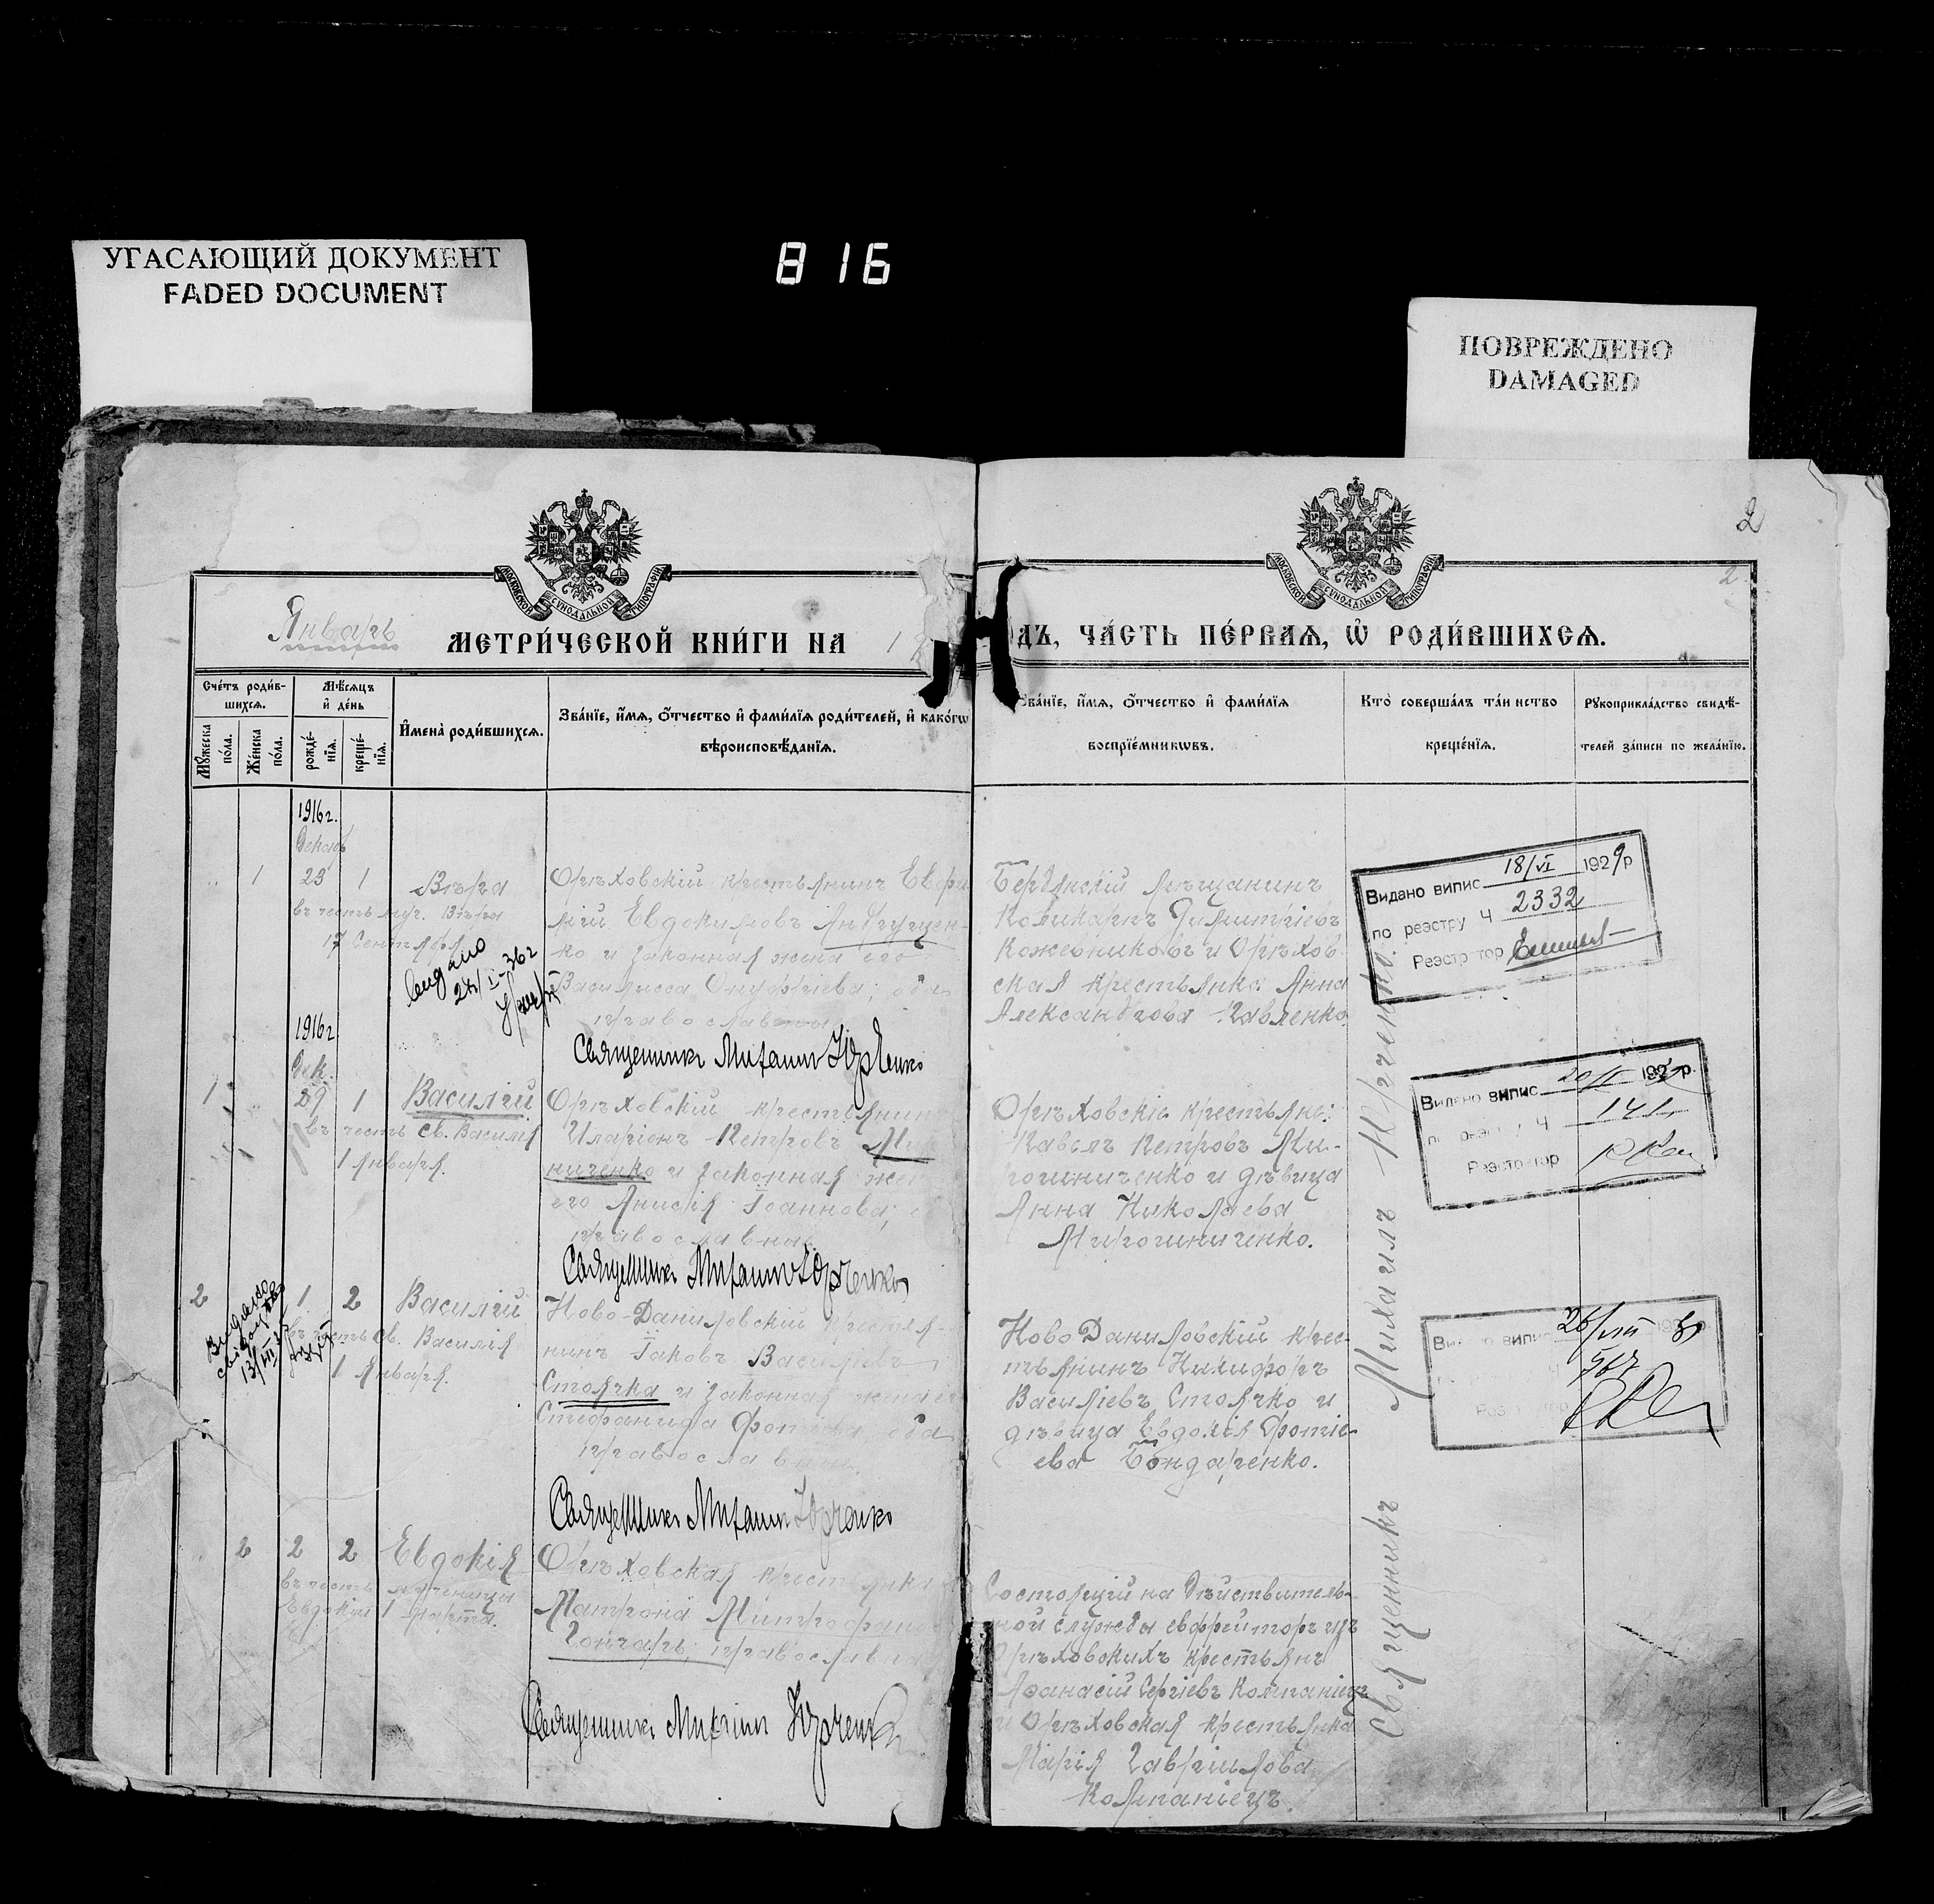 УГАСАЮЩИЙ ДОКУМЕНТ
FADED DOCUMENT
816
ПОВРЕЖДЕНО
DAMAGED
2
2
МОСКОВСКОЙ СѴНОДАЛЬНОЙ ТИПОГРАФІИ
МОСКОВСКОЙ СѴНОДАЛЬНОЙ ТИПОГРАФІИ
Январь МЕТРИ́ЧЕСКОЙ КНИ́ГИ НА 1
ДЪ, ЧА́СТЬ ПЕ́РВАѦ, Ѡ҆ РОДИ́ВШИХСѦ.
Сче́тъ роди́в-
шихсѧ.
Мꙋ́жеска
по́ла.
Же́нска
по́ла.
Мѣ́сѧцъ
и҆ де́нь
рожде́-
нїѧ.
креще́-
нїѧ.
И҆мена̀ роди́вшихсѧ.
Зва́нїе, и҆́мѧ, ѻ҆́тчество и҆ фами́лїѧ роди́телей, и҆ како́гѡ
вѣроисповѣ́данїѧ.
Зва́нїе, и҆́мѧ, ѻ҆́тчество и҆ фами́лїѧ
воспрїе́мникѡвъ.
Кто̀ соверша́лъ та́инство
креще́нїѧ.
Рꙋкоприкла́дство свидѣ́-
телей за́писи по жела́нїю.
1916г.
Декабр
1 23 1 Вѣра
въ честь муч. Вѣры
17 Сентября
Видано
Орѣховскій крестьянинъ Евфи
мій Евдокимовъ Андрущен-
ко и законная жена его
Василисса Онуфріева; оба
православны
Священникъ Михаилъ Юрченко
Бердянскій мѣщанинъ
Поликарпъ Димитріевъ
Кожевниковъ и Орѣхов-
ская крестьянка Анна
Александрова Павленко.
Видано випис 18/VI 1929р
по реэстру Ч 2332
Реэстратор
1916г
Дек.
1 29 1 Василій
въ честь св. Василія
1 Января.
Орѣховскій крестьянинъ
Иларіонъ Петровъ
ниченко и законная же
его Анисія Іоаннова;
православны
Священникъ Михаилъ Юрченко
Орѣховскіе крестьяне:
Павелъ Петровъ Ми-
рошниченко и дѣвица
Анна Николаева
Мирошниченко.
Видано випис 20/II
по реэстру Ч
Реэстратор
2 1 2 Василій
въ честь св. Василія
1 Января.
Видано
Ново-Даниловскій крестья-
нинъ Іаковъ Василіевъ
Стоячка и законная жена
Стефанида Фотіева, оба
православны.
Священникъ Михаилъ Юрченко
Ново Даниловскій крес-
тьянинъ Никифоръ
Василіевъ Стоячко и
дѣвица Евдокія Фотіе-
ева Бондаренко.
Видано випис 26/VIII
Реэстратор
2 2 2 Евдокія
въ честь мученицы
Евдокіи 1 марта.
Орѣховская крестьянка
Матрона Митрофан
Гончаръ; православн
Священникъ Михаилъ Юрченко
Состоящій на дѣйствитель-
ной службѣ ефрейторъ изъ
Орѣховскихъ крестьянъ
Аѳанасій Сергіевъ Компаніецъ
и Орѣховская крестьянка
Марія Гавріилова
Компаніецъ.
Священникъ Михаилъ Юрченко.